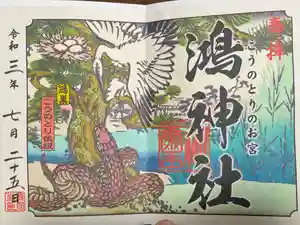 奉拝
鴻神社
こうのとりのお宮
こうのとり伝説
令和三年七月二十五日